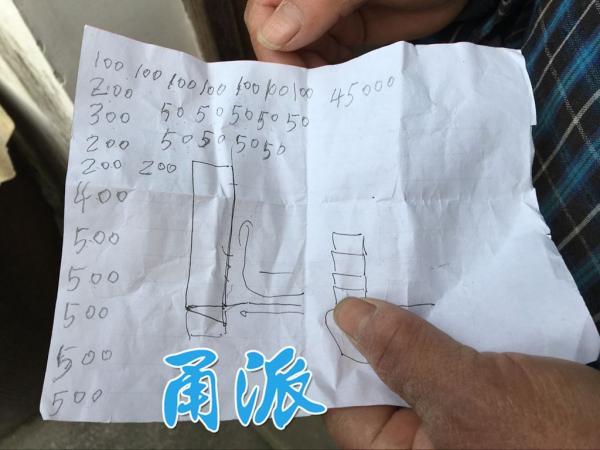 100 100 100 100 100 100 100 45000
200
300 50 50 50 50 50
200 50 50 50 50
200 200
400
500
500
500
500
500
甬派